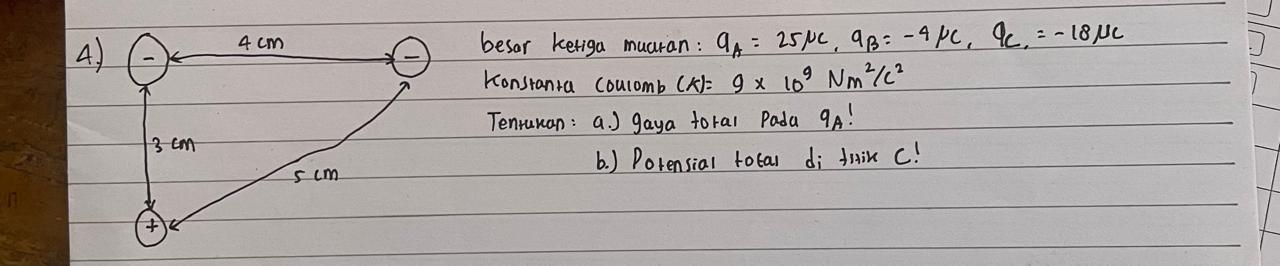 4.) - 4 cm - besar ketiga muatan : qA = 25 μC, qB = -4 μC, qC, = -18 μC
Konstanta Coulomb (K)= 9 x 10⁹ Nm²/C²
Tentukan : a.) gaya total Pada qA!
3 cm
b.) Potensial total di titik C!
5 cm
+